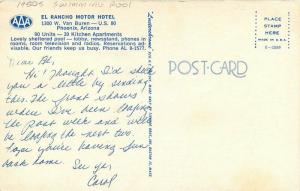 1950s SWIMMING POOL
AAA
EL RANCHO MOTOR HOTEL
1300 W. Van Buren — U.S. 80
Phoenix, Arizona
90 Units — 39 Kitchen Apartments
Lovely sheltered pool — lobby, newsstand, phones in
rooms, room television and radios. Reservations ad-
visable. Phone AL 8-1577
POST CARD
PLACE
STAMP
HERE
MADE IN U.S.A.
Hi! Thought I'd show
you a little by sending
this. The front shows
where I've been
the past week and will
be the next two.
Hope you're having fun
back home.
See ya
Carol